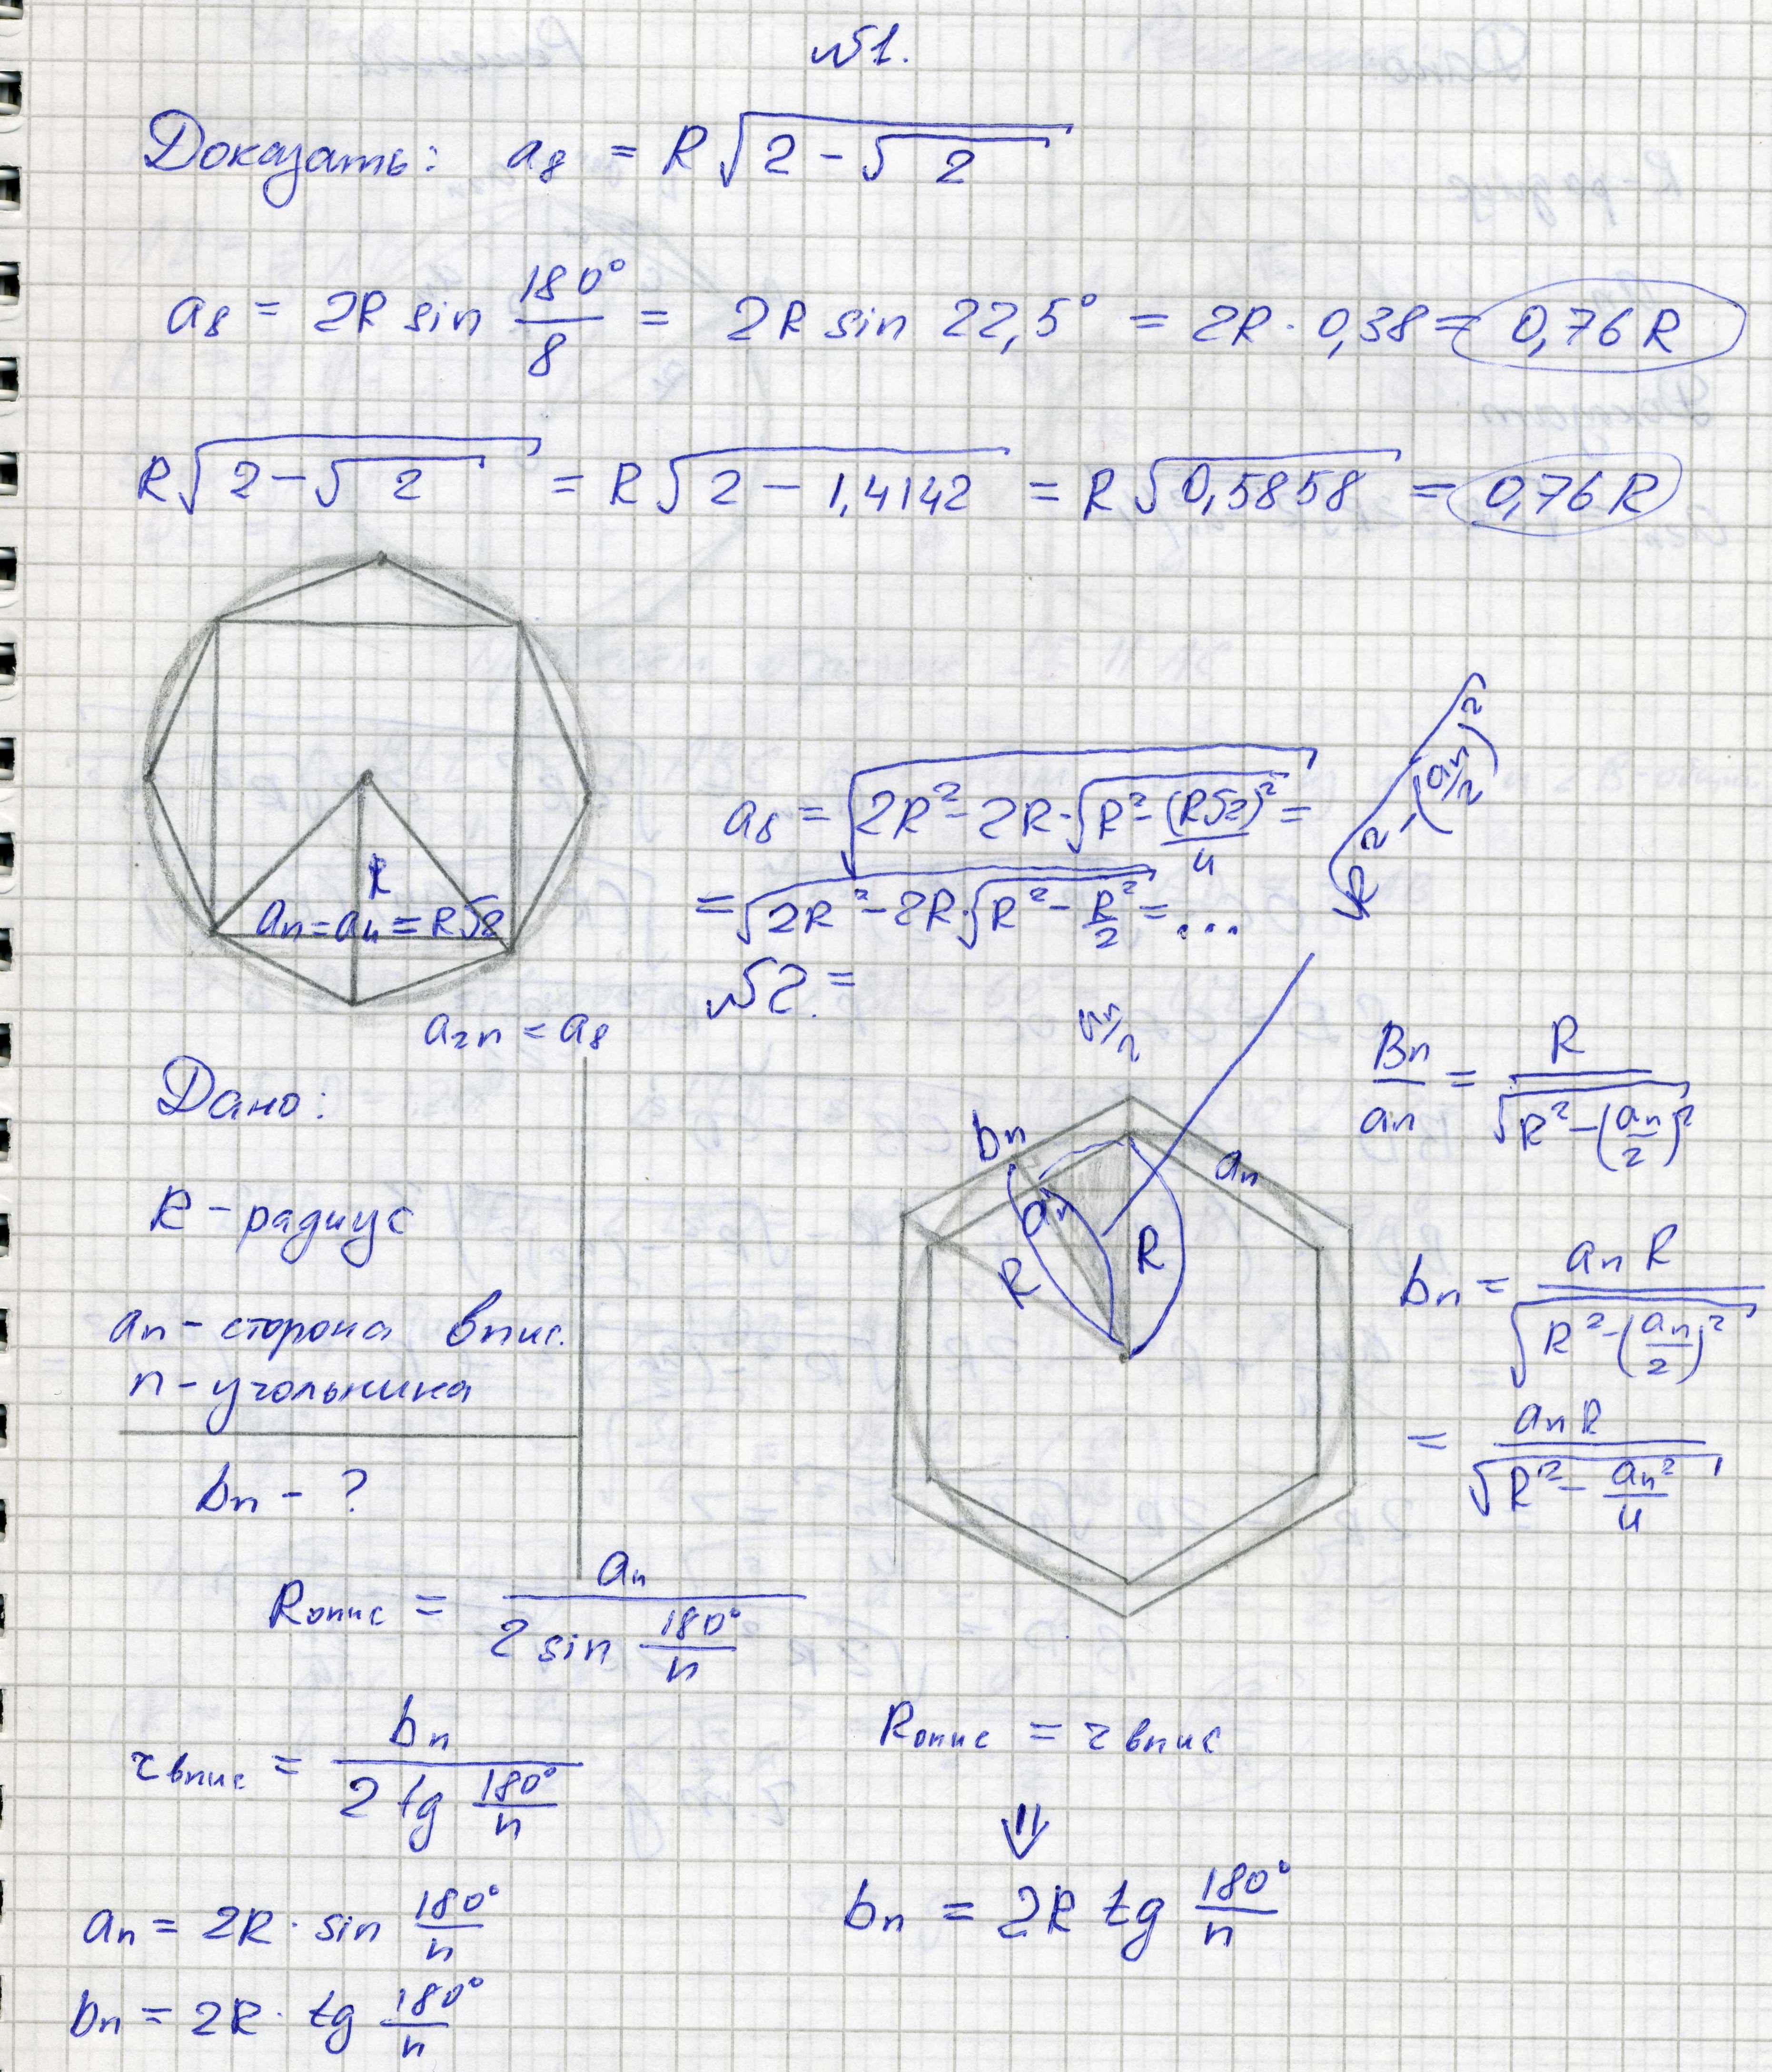 №1.
Доказать: a₈ = R√(2 - √2)
a₈ = 2R sin 180°/8 = 2R sin 22,5° = 2R · 0,38 = 0,76R
R√(2 - √2) = R√(2 - 1,4142) = R√0,5858 = 0,76R
R
aₙ = a₄ = R√2
a₂ₙ = a₈
a₈ = √(2R² - 2R·√(R² - (R√2)²/4)) =
= √(2R² - 2R·√(R² - R²/2)) = ...
√(R² - (aₙ/2)²)
№2. =
Дано:
R - радиус
aₙ - сторона впис.
n - угольника
bₙ - ?
aₙ/2
bₙ
aₙ
aₙ
R
R
Bₙ/aₙ = R/√(R² - (aₙ/2)²)
bₙ = aₙR/√(R² - (aₙ/2)²)
= aₙR/√(R² - aₙ²/4)
Rопис = aₙ/(2 sin 180°/n)
rвпис = bₙ/(2 tg 180°/n)
Rопис = rвпис
⇓
aₙ = 2R · sin 180°/n
bₙ = 2R tg 180°/n
bₙ = 2R · tg 180°/n